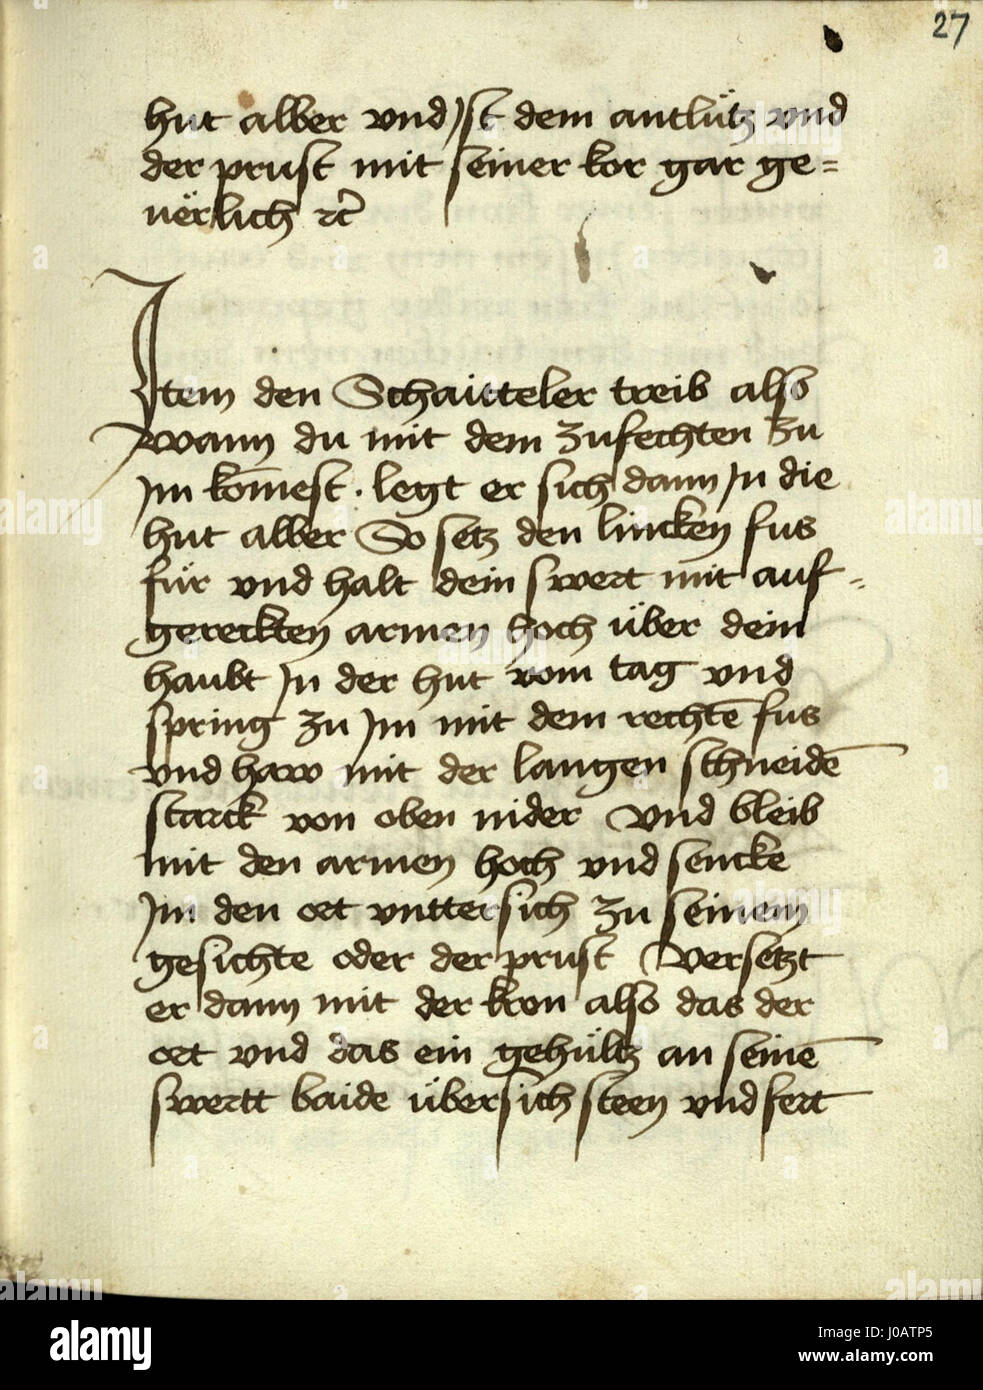 27
hut alber vnd Jst dem antlütz vnd
der prust mit seiner kor gar ge=
uërlich ꝛc̄
Jtem den Schaitteler treib also
Wann du mit dem zufechten zu
Jm komest · legt er sich dann Jn die
hut alber So setz den lincken fus
für vnd halt dein swert mit auf-
gereckten armen hoch über dein
haubt Jn der hut vom tag vnd
spring zu Jm mit dem rechtē fus
vnd haw mit der langen schneidē
starck von oben nider vnd bleib
mit den armen hoch vnd sencke
Jm den ort vnttersich zu seinem
gesichte oder der prust Versetzt
er dann mit der kron also das der
ort vnd das ein gehültz an seinē
swertt baide übersich steen vnd fert
alamy
Image ID: J0ATP5
www.alamy.com